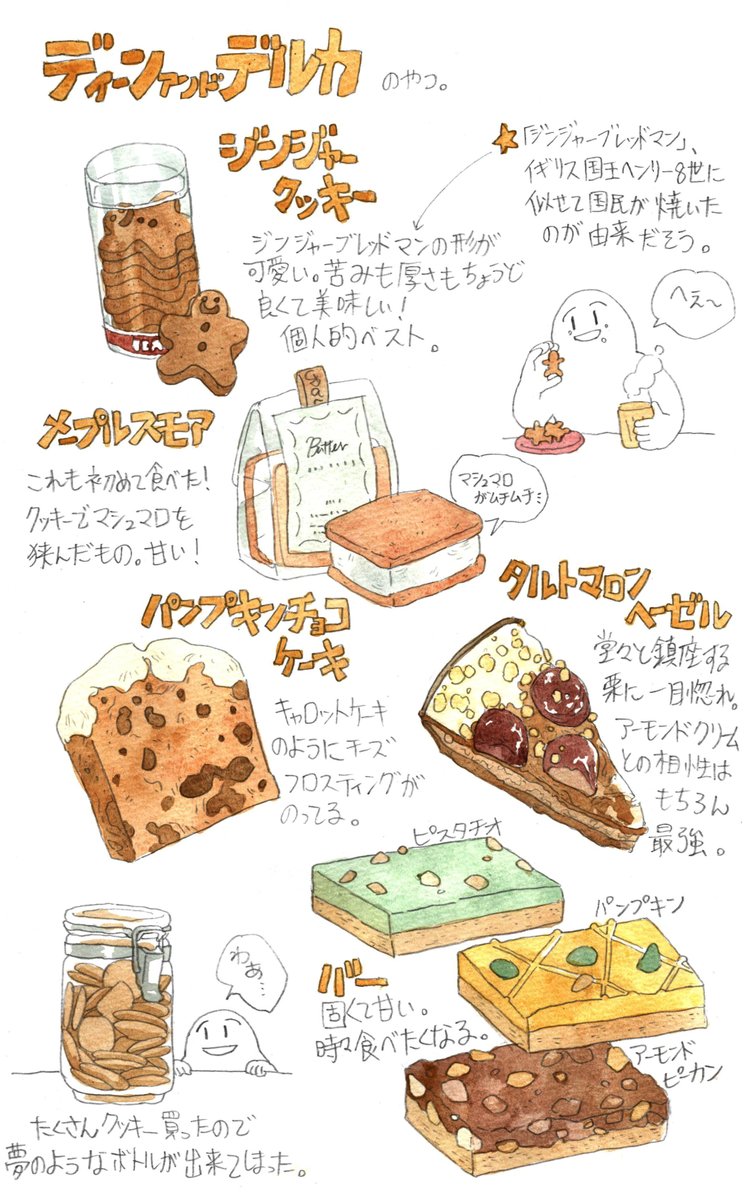 ディーンアンドデルカ のやつ。
ジンジャー
クッキー
★「ジンジャーブレッドマン」、
イギリス国王ヘンリー8世に
似せて国民が焼いた
のが由来だそう。
ジンジャーブレッドマンの形が
可愛い。苦みも厚さもちょうど
良くて美味しい!
個人的ベスト。
へぇ〜
メープルスモア
これも初めて食べた!
クッキーでマシュマロを
挟んだもの。甘い!
Butter
マシュマロ
がムチムチ
パンプキンチョコ
ケーキ
キャロットケーキ
のようにチーズ
フロスティングが
のってる。
タルトマロン
ヘーゼル
堂々と鎮座する
栗に一目惚れ。
アーモンドクリーム
との相性は
もちろん
最強。
ピスタチオ
パンプキン
バー
固くて甘い。
時々食べたくなる。
アーモンド
ピーカン
わぁ…
たくさんクッキー買ったので
夢のようなボトルが出来てしまった。